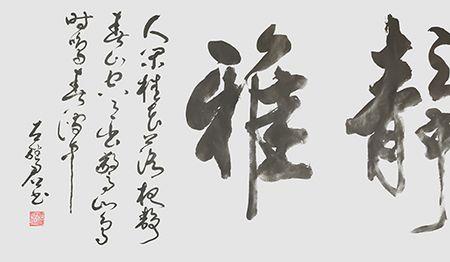 静雅
人闲桂花落夜静
春山空月出惊山鸟
时鸣春涧中
君书